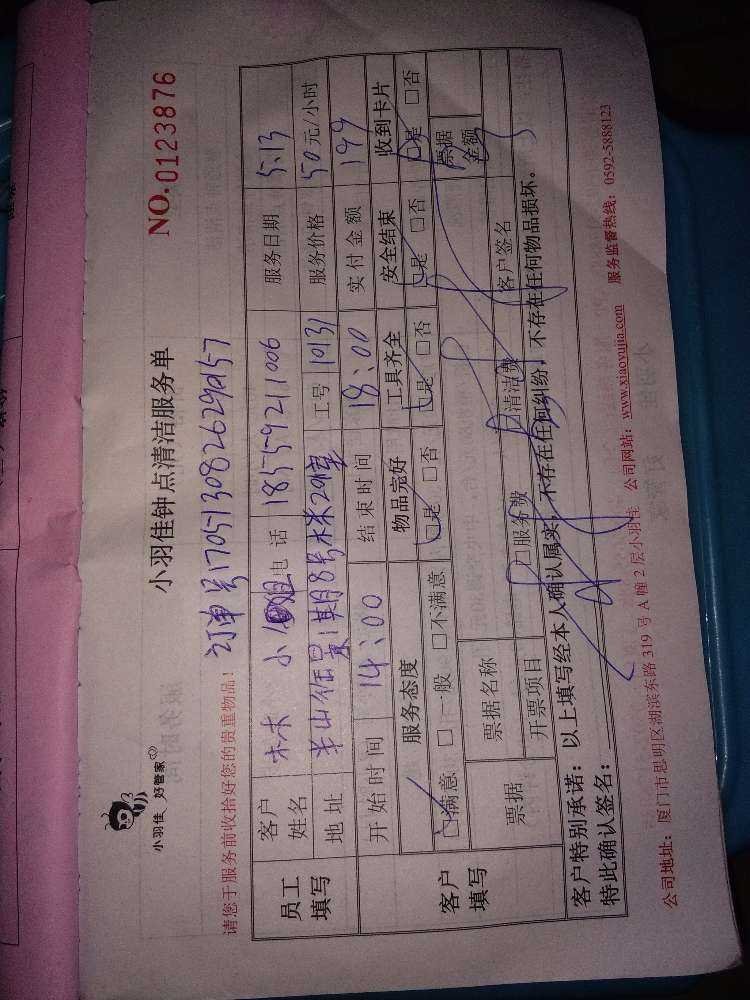 小羽佳 好管家
小羽佳钟点清洁服务单
NO.0123876
请您于服务前收拾好您的贵重物品!
订单号1705130826290157
员工填写
客户姓名 林 小姐 电话 18559211006 服务日期 5.13
地址 半山 1期8号 工号 10131 服务价格 50元/小时
客户填写
开始时间 14:00 结束时间 18:00 实付金额 199
服务态度 物品完好 工具齐全 安全结束 收到卡片
□满意 □一般 □不满意 □是 □否 □是 □否 □是 □否 □是 □否
票据 票据名称 票据金额
开票项目 □服务费 □清洁费 客户签名
客户特别承诺:以上填写经本人确认属实,不存在任何纠纷,不存在任何物品损坏。
特此确认签名:
公司地址:厦门市思明区湖滨东路 319 号 A 幢 2 层小羽佳 公司网站:www.xiaoyujia.com 服务监督热线:0592-5888123